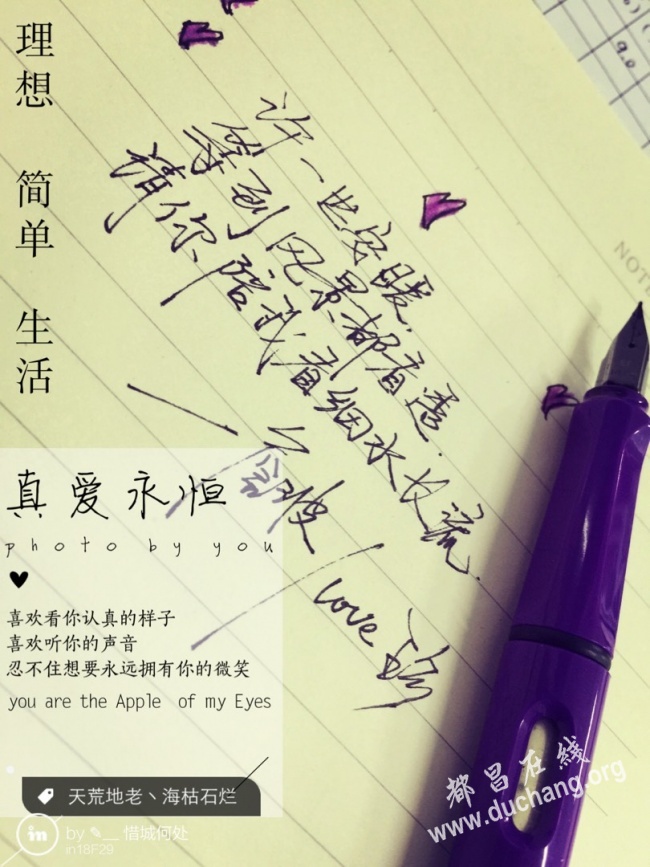 理想 简单 生活
许一世安暖.
等到风景都看透.
请你陪我看细水长流.
love
NOT
真爱永恒
photo by you
喜欢看你认真的样子
喜欢听你的声音
忍不住想要永远拥有你的微笑
you are the Apple of my Eyes
天荒地老、海枯石烂
in
by ✎__ 惜城何处
in18F29
都昌在线
www.duchang.org